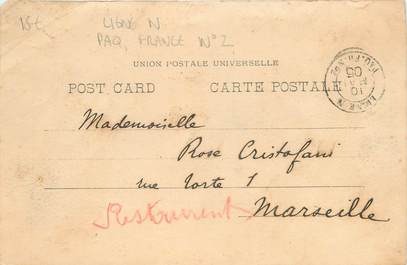 15t
LIGNE N
PAQ. FRANCE N°2
UNION POSTALE UNIVERSELLE
POST CARD CARTE POSTALE
LIGNE N
PAQ. FR. N°2
10
05
Mademoiselle
Rose Cristofani
rue Torte 1
Restaurent Marseille